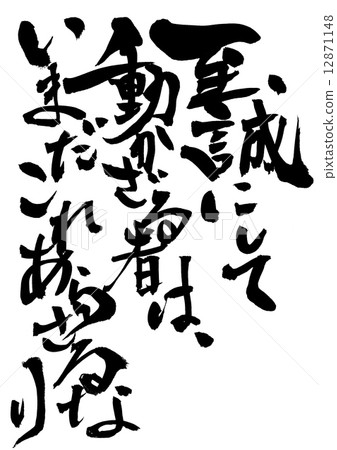 至誠にして
動かざる者は、
いまだこれあらざるなり
12871148